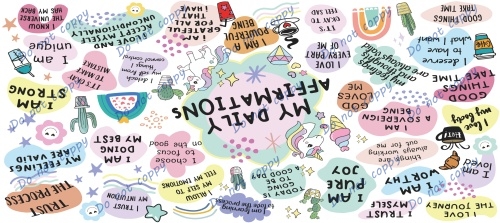 I KNOW
THE UNIVERSE
HAS MY BACK
I ACCEPT
AND LOVE MYSELF
UNCONDITIONALLY
I AM
GRATEFUL
FOR ALL
THAT I
HAVE
I AM A
POWERFUL
BEING
IT'S
OKAY TO
FEEL SAD
GOOD THINGS
TAKE TIME
i am
unique
I LOVE
EVERY PART
OF ME
I deserve
to have
what I want
IT'S OKAY
TO MAKE
MISTAKE
I AM
STRONG
MY DAILY
AFFIRMATIONS
GOD
LOVES
ME
GOOD
THINGS
TAKE TIME
I AM
A SOVEREIGN
BEING
I love
my body
MY FEELINGS
ARE VALID
I AM
DOING
MY BEST
I choose
to focus
on the good
things are
always working
out for me
I AM
WORTHY
i am
loved
TRUST
THE PROCESS
I TRUST
MY INTUITION
TODAY IS
GOING
TO BE
A GOOD DAY
I AM
PURE
JOY
I TRUST
MYSELF
I LOVE
THE JOURNEY
Do not copy